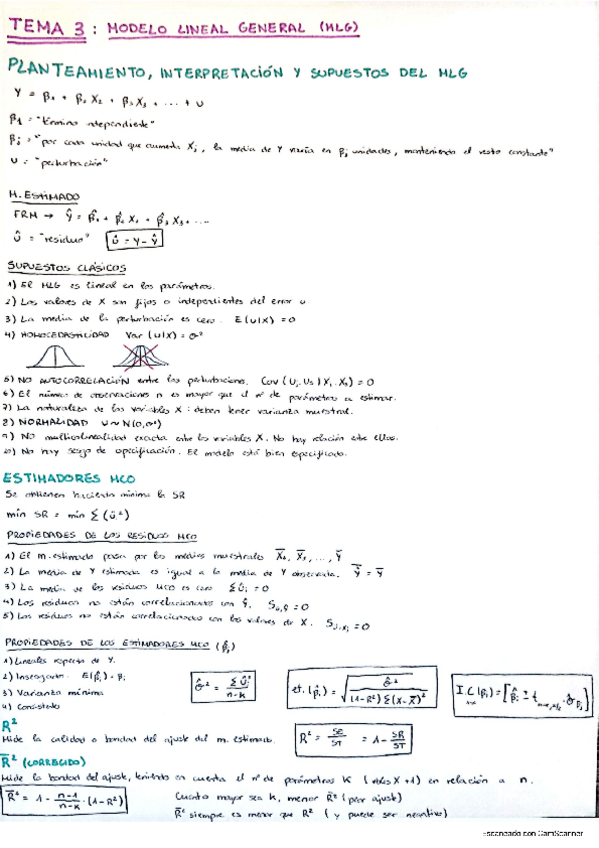 TEMA 3 : MODELO LINEAL GENERAL (MLG)
PLANTEAMIENTO, INTERPRETACIÓN Y SUPUESTOS DEL MLG
Y = β₁ + β₂ X₂ + β₃ X₃ + ... + u
β₁ = "término independiente"
βⱼ = "por cada unidad que aumenta Xⱼ, la media de Y varía en βⱼ unidades, manteniendo el resto constante"
u = "perturbación"
M. ESTIMADO
FRM → Ŷ = β̂₁ + β̂₂ X₂ + β̂₃ X₃ + ...
û = "residuo" û = Y - Ŷ
SUPUESTOS CLÁSICOS
1) El MLG es lineal en los parámetros.
2) Los valores de X son fijos o independientes del error u
3) La media de la perturbación es cero. E(u|X) = 0
4) HOMOCEDASTICIDAD Var (u|X) = σ²
5) NO AUTOCORRELACIÓN entre las perturbaciones. Cov (Uᵢ, Us | Xᵢ, Xs) = 0
6) El número de observaciones n es mayor que el nº de parámetros a estimar.
7) La naturaleza de las variables X : deben tener varianza muestral.
8) NORMALIDAD U ~ N(0, σ²)
9) NO multicolinealidad exacta entre las variables X. No hay relación entre ellas.
10) No hay sesgo de especificación. El modelo está bien especificado.
ESTIMADORES MCO
Se obtienen haciendo mínima la SR
min SR = min Σ (ûᵢ²)
PROPIEDADES DE LOS RESIDUOS MCO
1) El m. estimado pasa por las medias muestrales X̄₂, X̄₃, ..., Ȳ
2) La media de Y estimada es igual a la media de Y observada.
3) La media de los residuos MCO es cero Σûᵢ = 0
4) Los residuos no están correlacionados con Ŷ. Sû,ŷ = 0
5) Los residuos no están correlacionados con los valores de X. Sû,xⱼ = 0
PROPIEDADES DE LOS ESTIMADORES MCO (β̂ⱼ)
1) Lineales respecto de Y.
2) Insesgados. E(β̂ⱼ) = βⱼ
3) Varianza mínima
4) Consistente
σ̂² = Σûᵢ² / n-k
et. (β̂ⱼ) = √ σ̂² / (1-R²) Σ(X-X̄)²
R²
Mide la calidad o bondad del ajuste del m. estimado.
R² = SE / ST = 1 - SR / ST
R̄² (CORREGIDO)
Mide la bondad del ajuste, teniendo en cuenta el nº de parámetros K (vbles X + 1) en relación a n.
R̄² = 1 - n-1 / n-k · (1-R²)
Cuanto mayor sea k, menor R̄² (peor ajuste)
R̄² siempre es menor que R² (y puede ser negativo)
Escaneado con CamScanner